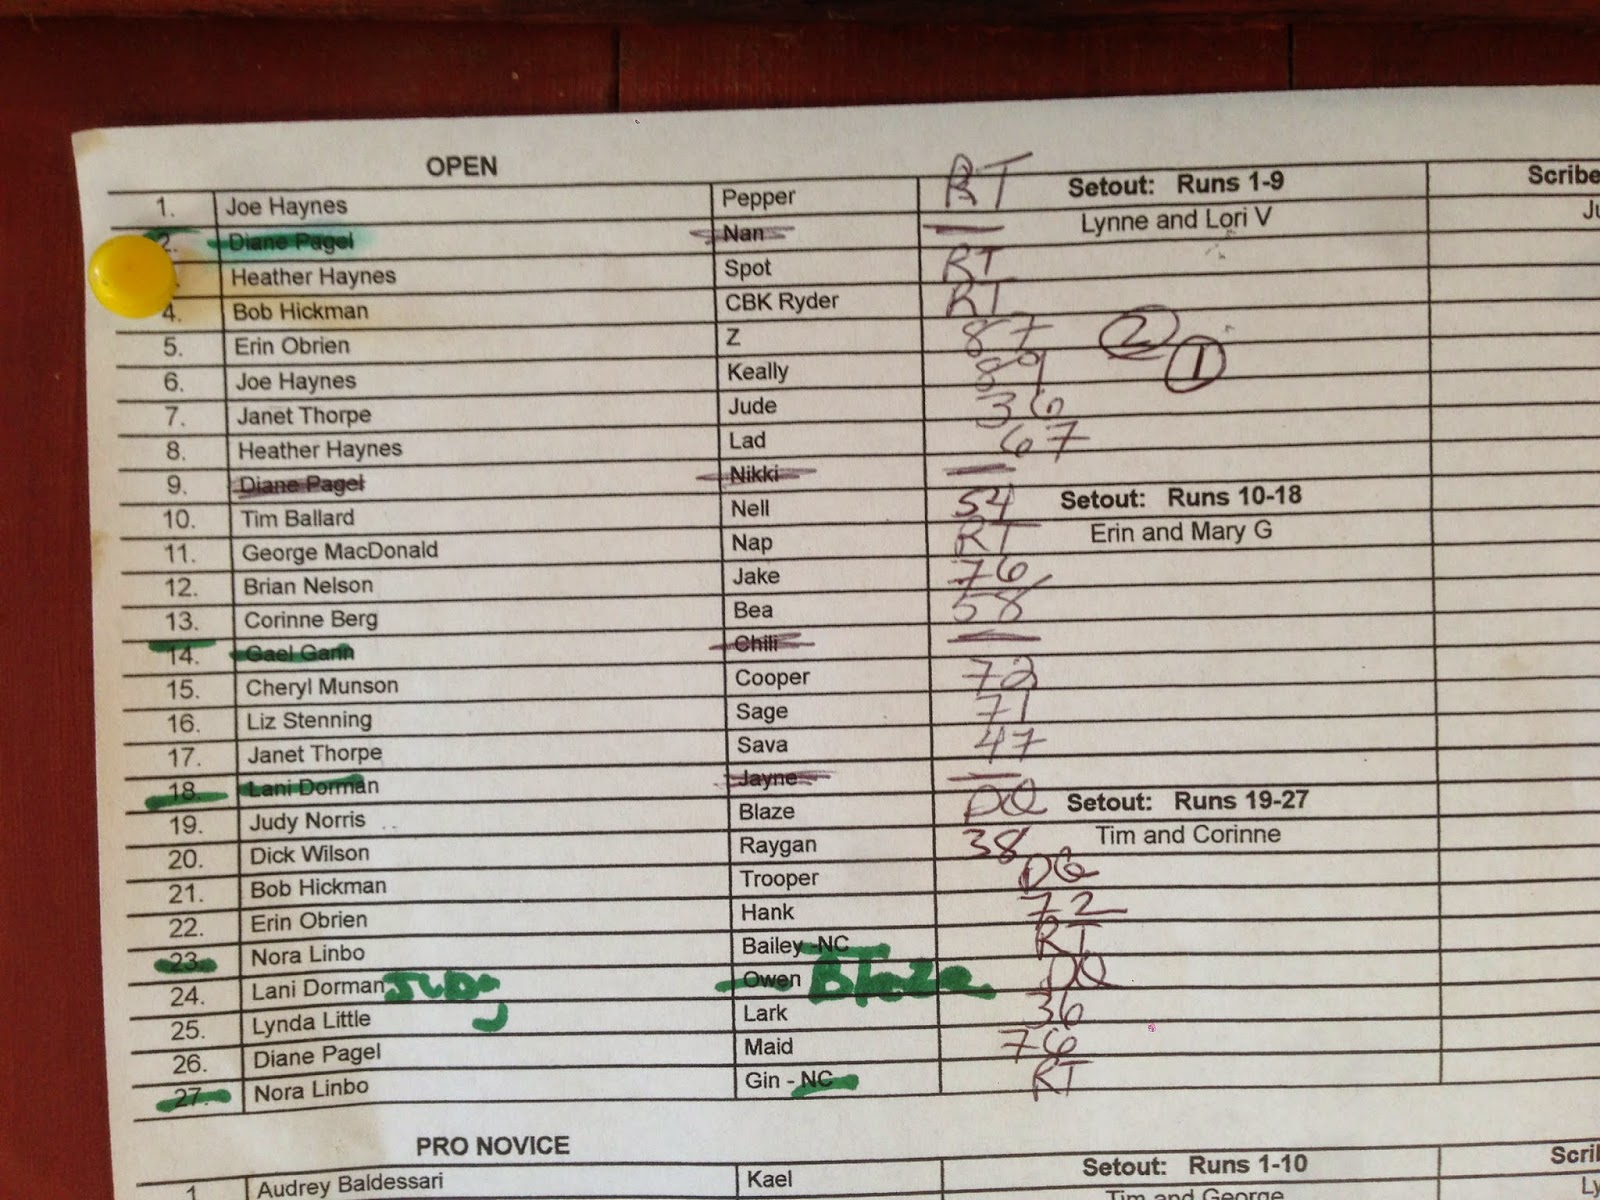 OPEN
1. Joe Haynes Pepper RT Setout: Runs 1-9 Scribe
2. Diane Pagel Nan — Lynne and Lori V
Heather Haynes Spot RT
4. Bob Hickman CBK Ryder RT
5. Erin Obrien Z 87 2
6. Joe Haynes Keally 89 1
7. Janet Thorpe Jude 36
8. Heather Haynes Lad 67
9. Diane Pagel Nikki —
10. Tim Ballard Nell 54 Setout: Runs 10-18
11. George MacDonald Nap RT Erin and Mary G
12. Brian Nelson Jake 76
13. Corinne Berg Bea 58
14. Gael Gann Chili —
15. Cheryl Munson Cooper 72
16. Liz Stenning Sage 71
17. Janet Thorpe Sava 47
18. Lani Dorman Jayne —
19. Judy Norris Blaze DQ Setout: Runs 19-27
20. Dick Wilson Raygan 38 Tim and Corinne
21. Bob Hickman Trooper DQ
22. Erin Obrien Hank 72
23. Nora Linbo Bailey -NC RT
24. Lani Dorman Judy Owen Blaze DQ
25. Lynda Little Lark 36
26. Diane Pagel Maid 76
27. Nora Linbo Gin - NC RT
PRO NOVICE
1 Audrey Baldessari Kael Setout: Runs 1-10
Tim and George